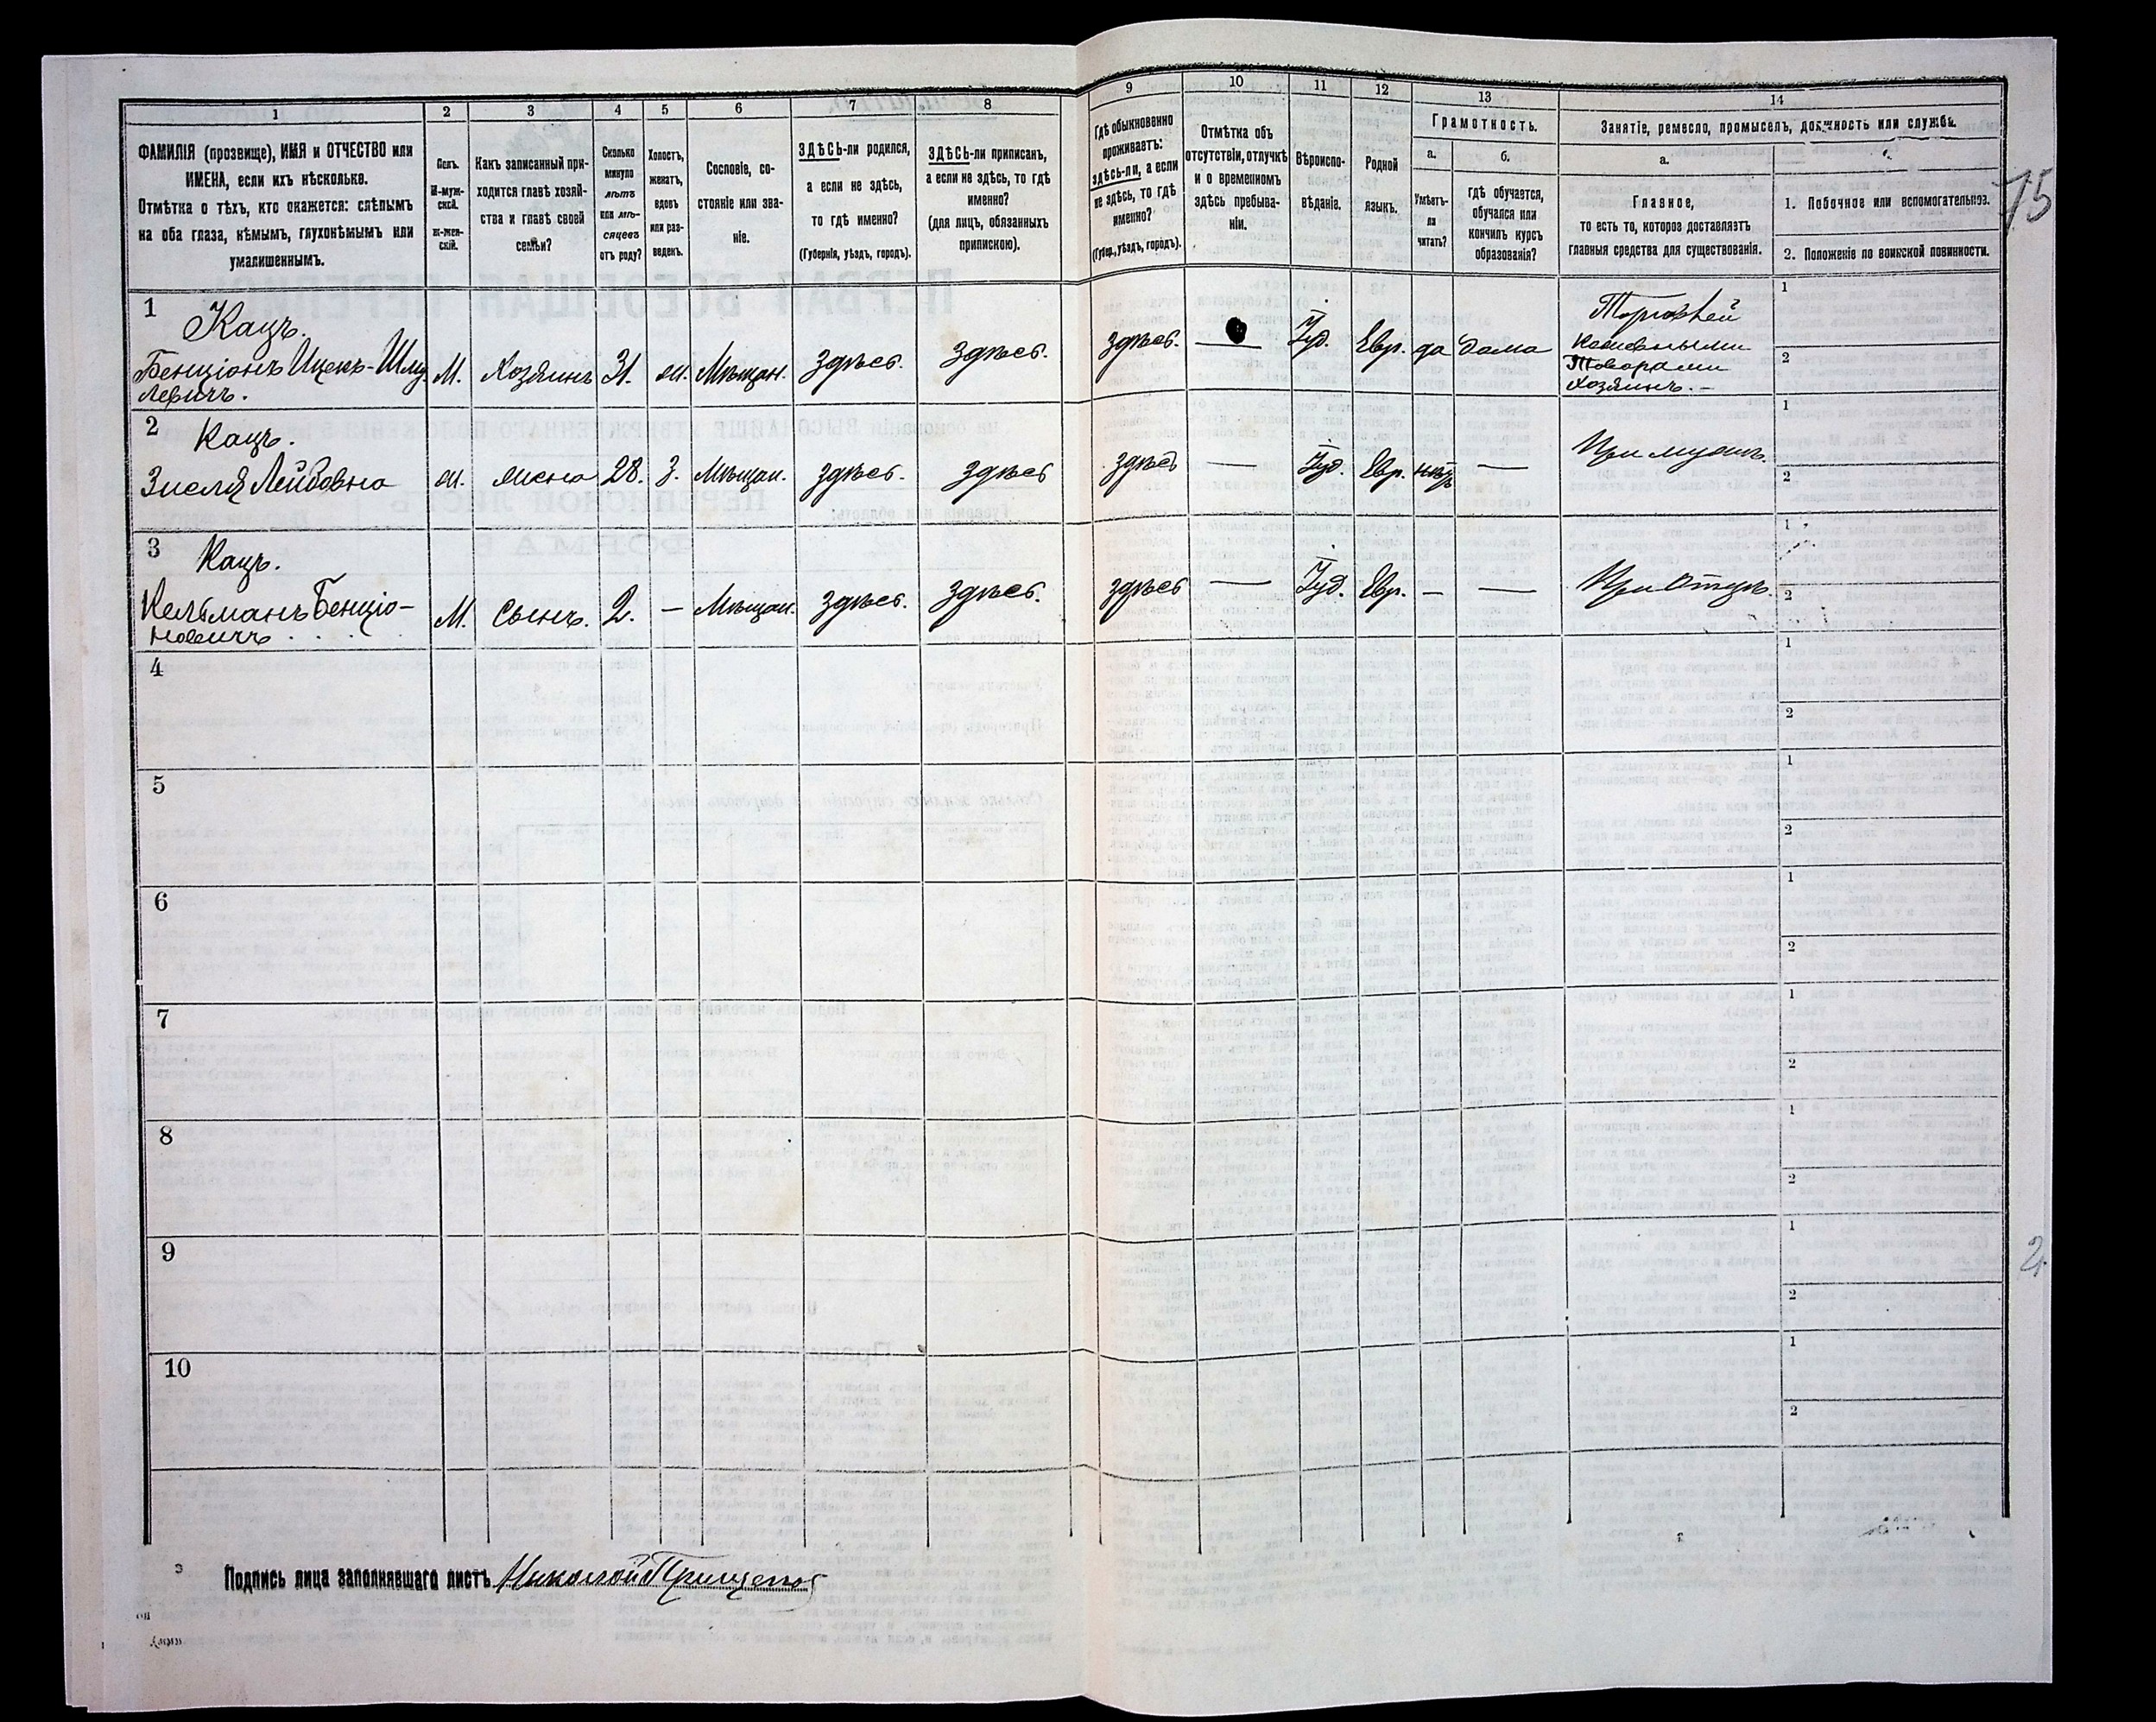 1 2 3 4 5 6 7 8 9 10 11 12 13 14
ФАМИЛІЯ (прозвище), ИМЯ и ОТЧЕСТВО или
ИМЕНА, если ихъ нѣсколько.
Отмѣтка о тѣхъ, кто окажется: слѣпымъ
на оба глаза, нѣмымъ, глухонѣмымъ или
умалишеннымъ.
Полъ.
М-муж-
ской.
Ж-жен-
скій.
Какъ записанный при-
ходится главѣ хозяй-
ства и главѣ своей
семьи?
Сколько
минуло
лѣтъ
или мѣ-
сяцевъ
отъ роду?
Холостъ,
женатъ,
вдовъ
или раз-
веденъ.
Сословіе, со-
стояніе или зва-
ніе.
ЗДѢСЬ-ли родился,
а если не здѣсь,
то гдѣ именно?
(Губернія, уѣздъ, городъ).
ЗДѢСЬ-ли приписанъ,
а если не здѣсь, то гдѣ
именно?
(для лицъ, обязанныхъ
припискою).
Гдѣ обыкновенно
проживаетъ:
здѣсь-ли, а если
не здѣсь, то гдѣ
именно?
(Губер., уѣздъ, городъ).
Отмѣтка объ
отсутствіи, отлучкѣ
и о временномъ
здѣсь пребыва-
ніи.
Вѣроиспо-
вѣданіе.
Родной
языкъ.
Грамотность.
а.
Умѣетъ-
ли
читать?
б.
гдѣ обучается,
обучался или
кончилъ курсъ
образованія?
Занятіе, ремесло, промыселъ, должность или служба.
а.
Главное,
то есть то, которое доставляетъ
главныя средства для существованія.
1. Побочное или вспомогательное.
2. Положеніе по воинской повинности.
15
1 Кацъ.
Бенціонъ Ицекъ-Шму
левичъ. М. Хозяинъ 31. ж. Мѣщан. Здѣсь. Здѣсь. здѣсь. — Іуд. Евр. да дома
Торговлей
Товарами
Хозяинъ. —
1
2
2 Кацъ.
Зисля Лейбовна ж. жена 28. З. Мѣщан. здѣсь. здѣсь здѣсь — Іуд. Евр. нѣтъ — При мужѣ.
1
2
3 Кацъ.
Кельманъ Бенціо-
новичъ М. Сынъ. 2. — Мѣщан. Здѣсь. Здѣсь. здѣсь — Іуд. Евр. — — При Отцѣ.
1
2
4
1
2
5
1
2
6
1
2
7
1
2
8
1
2
9
1
2
2.
10
1
2
Подпись лица заполнявшаго листъ Николай Прищепов